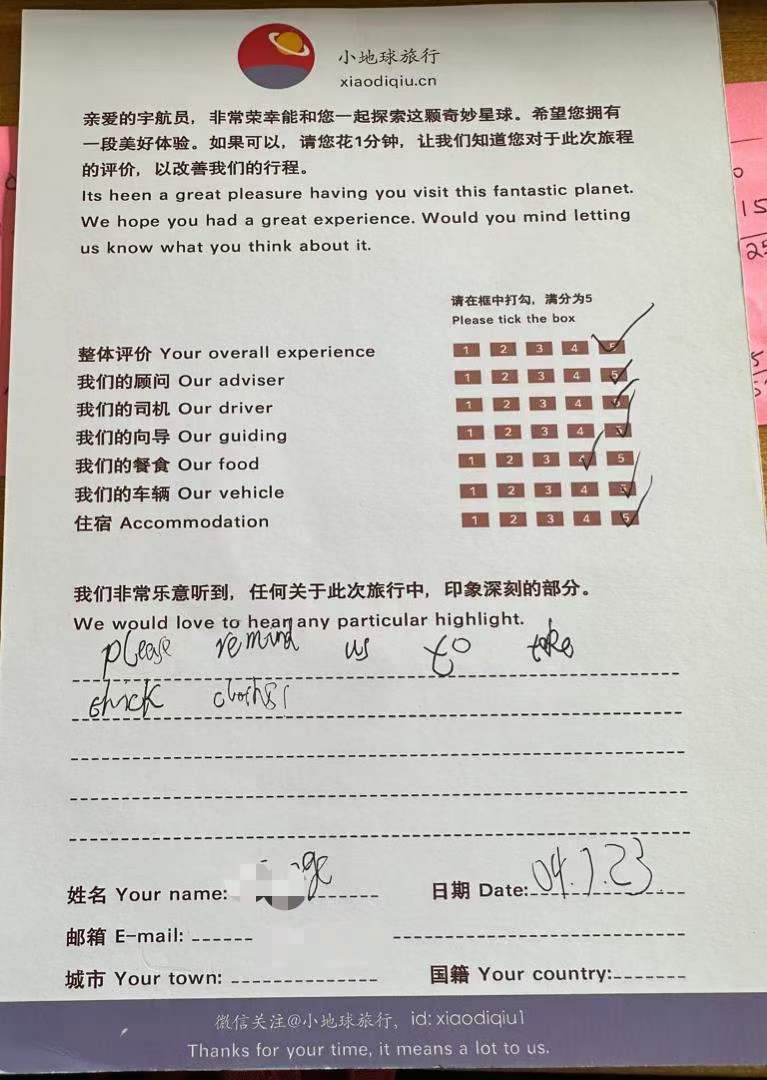 小地球旅行
xiaodiqiu.cn
亲爱的宇航员，非常荣幸能和您一起探索这颗奇妙星球。希望您拥有
一段美好体验。如果可以，请您花1分钟，让我们知道您对于此次旅程
的评价，以改善我们的行程。
Its heen a great pleasure having you visit this fantastic planet.
We hope you had a great experience. Would you mind letting
us know what you think about it.
请在框中打勾，满分为5
Please tick the box
整体评价 Your overall experience 1 2 3 4 5
我们的顾问 Our adviser 1 2 3 4 5
我们的司机 Our driver 1 2 3 4 5
我们的向导 Our guiding 1 2 3 4 5
我们的餐食 Our food 1 2 3 4 5
我们的车辆 Our vehicle 1 2 3 4 5
住宿 Accommodation 1 2 3 4 5
我们非常乐意听到，任何关于此次旅行中，印象深刻的部分。
We would love to hear any particular highlight.
please remind us to take
姓名 Your name: 日期 Date: 04.7.23
邮箱 E-mail:
城市 Your town: 国籍 Your country:
微信关注@小地球旅行，id: xiaodiqiu1
Thanks for your time, it means a lot to us.